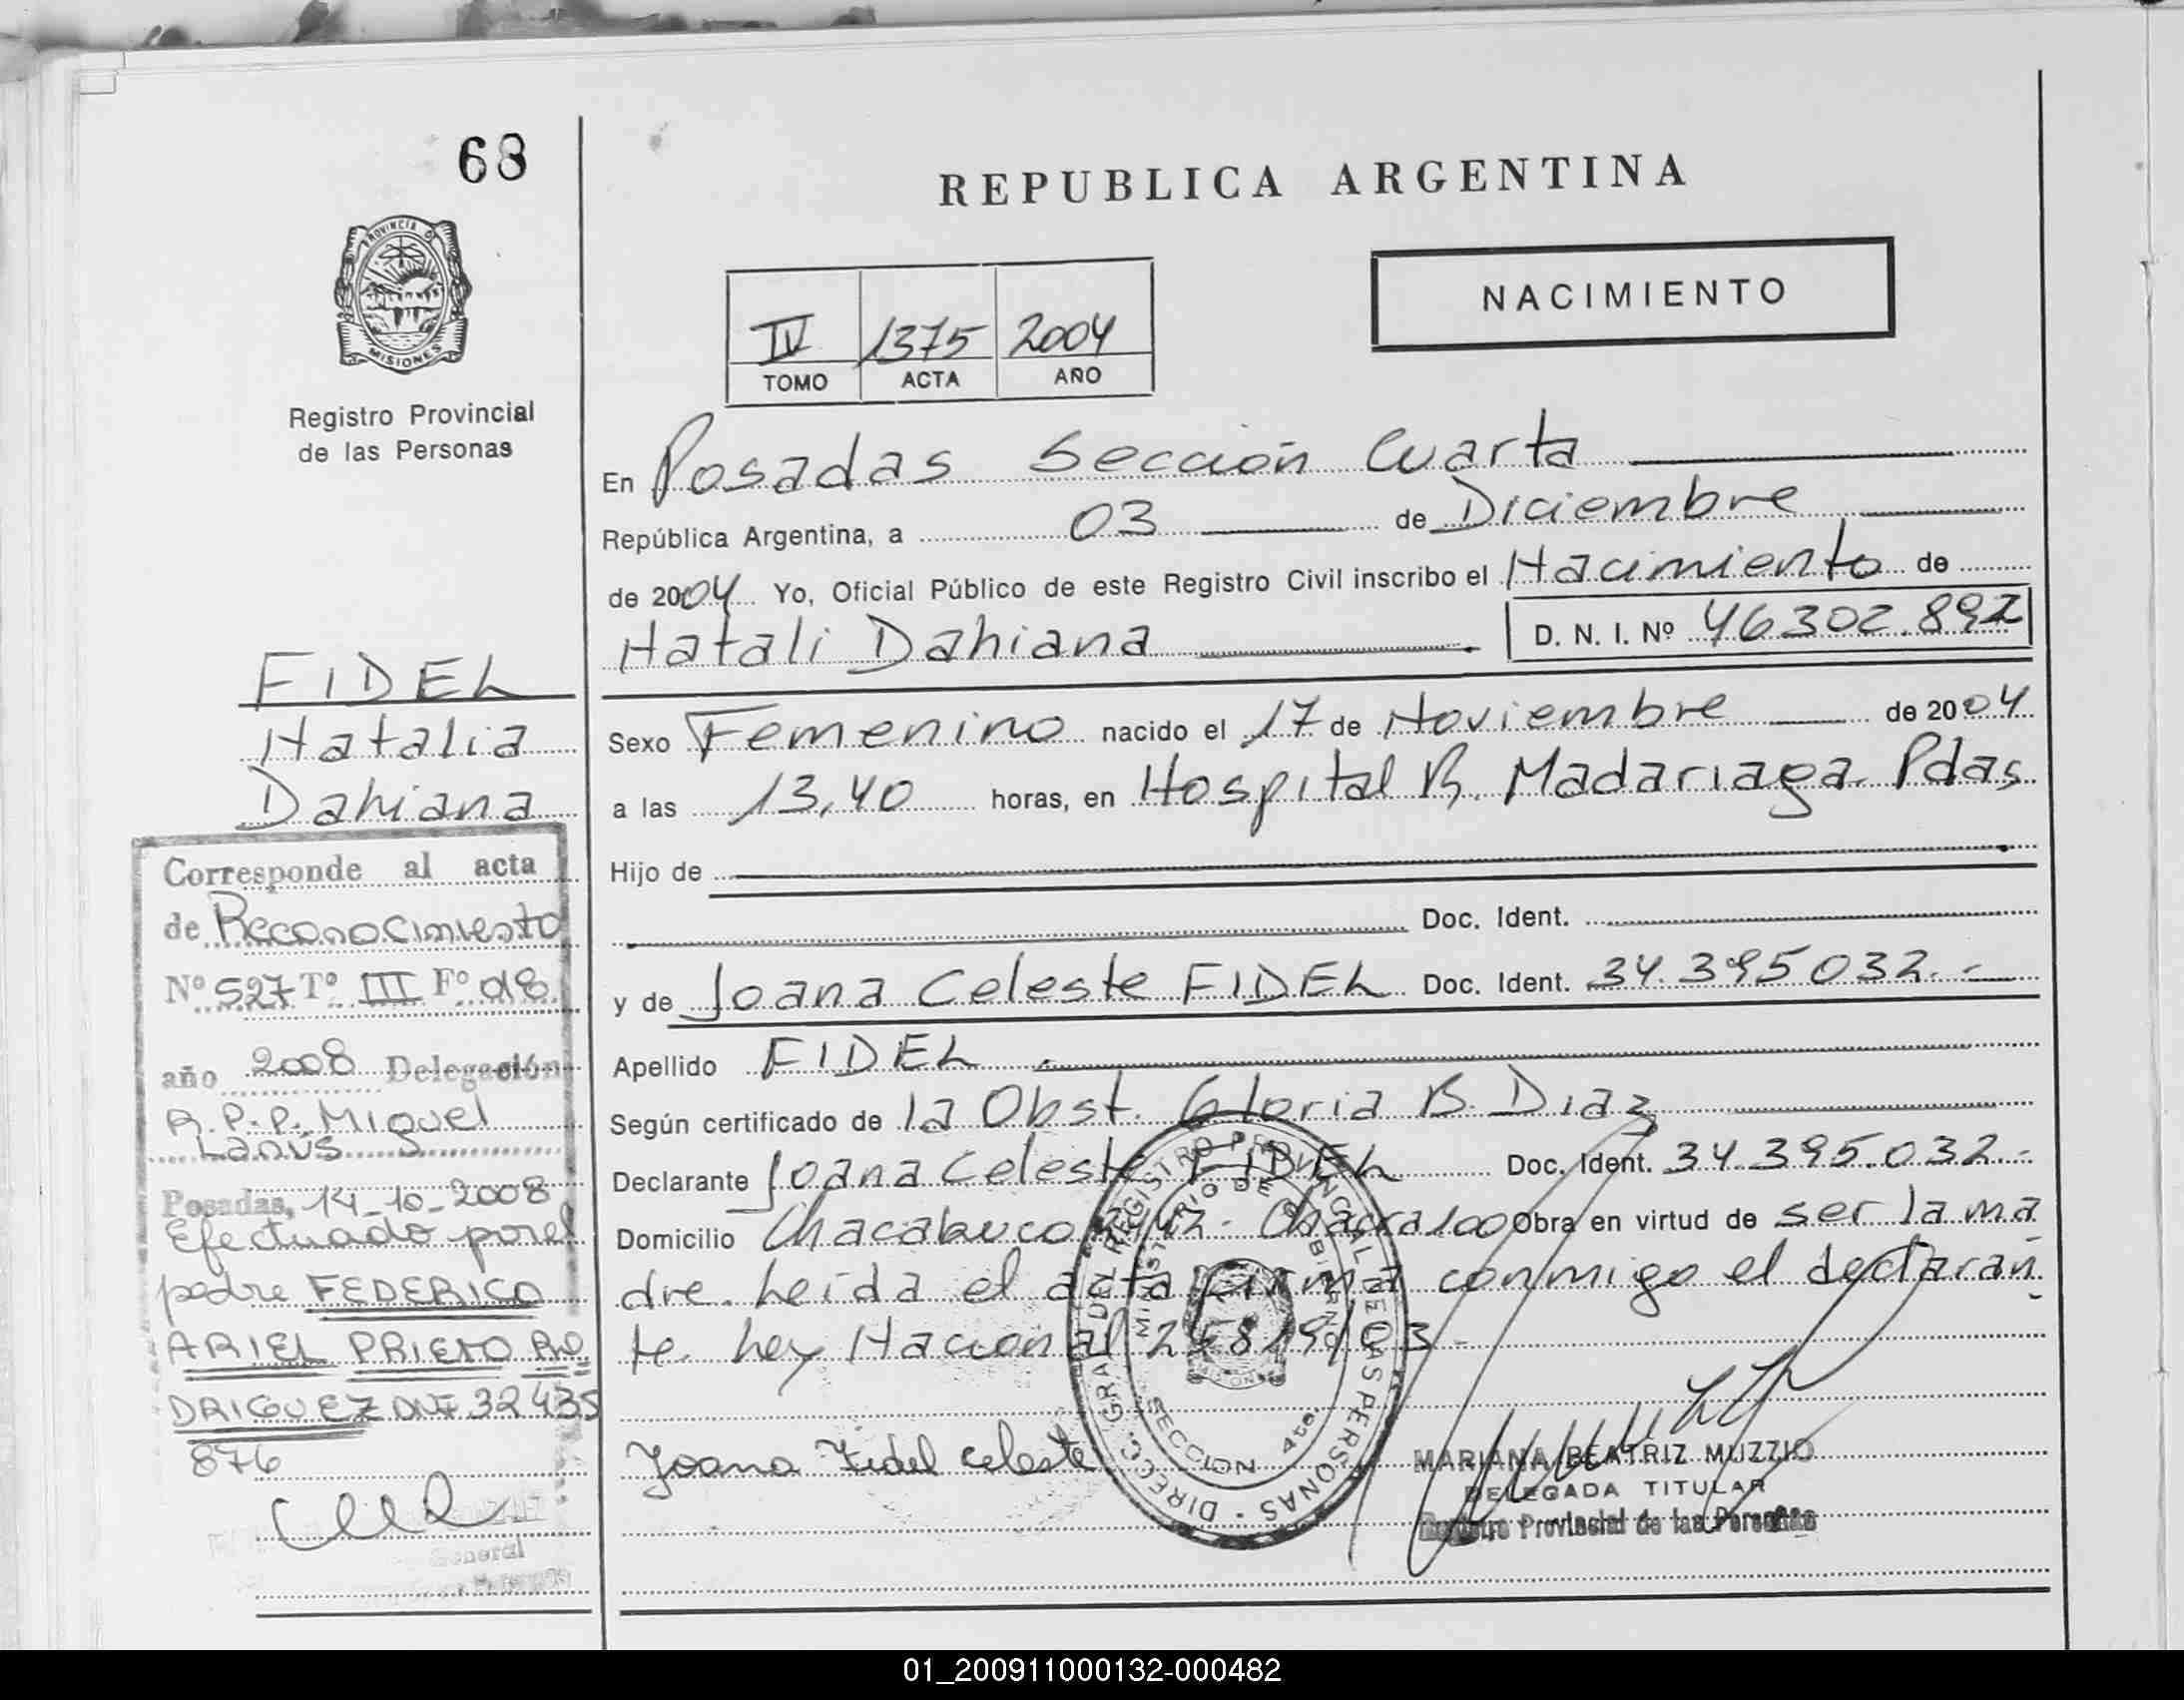 68
REPUBLICA ARGENTINA
NACIMIENTO
PROVINCIA D
MISIONES
Registro Provincial
de las Personas
IV 1375 2004
TOMO ACTA AÑO
En Posadas Sección Cuarta
República Argentina, a 03 de Diciembre
de 2004 Yo, Oficial Público de este Registro Civil inscribo el Nacimiento de
Natali Dahiana
D. N. I. Nº 46302.892
Sexo Femenino nacido el 17 de Noviembre de 2004
a las 13,40 horas, en Hospital R. Madariaga. Pdas
Hijo de
Doc. Ident.
y de Joana Celeste FIDEL Doc. Ident. 34.395032.-
Apellido FIDEL
Según certificado de la Obst. Gloria B. Diaz
Declarante Joana Celeste FIDEL Doc. Ident. 34.395.032.-
Domicilio Chacabuco Chacra 100 Obra en virtud de ser la ma
dre. Leída el acta firma conmigo el declaran
te. Ley Nacional
Joana Fidel Celeste
MARIANA BEATRIZ MUZZIO
DELEGADA TITULAR
Registro Provincial de las Personas
DIRECC. GRAL DEL REGISTRO PROVINCIAL DE LAS PERSONAS
MINISTERIO DE GOBIERNO
SECCION 4ta.
FIDEL
Natalia
Dahiana
Corresponde al acta
de Reconocimiento
Nº 527 Tº III Fº 018
año 2008 Delegación
R.P.P. Miguel
Lanús
Posadas, 14-10-2008
Efectuado por el
padre FEDERICO
ARIEL PRIETO RO
DRIGUEZ DNI 32435
876
General
01_200911000132-000482